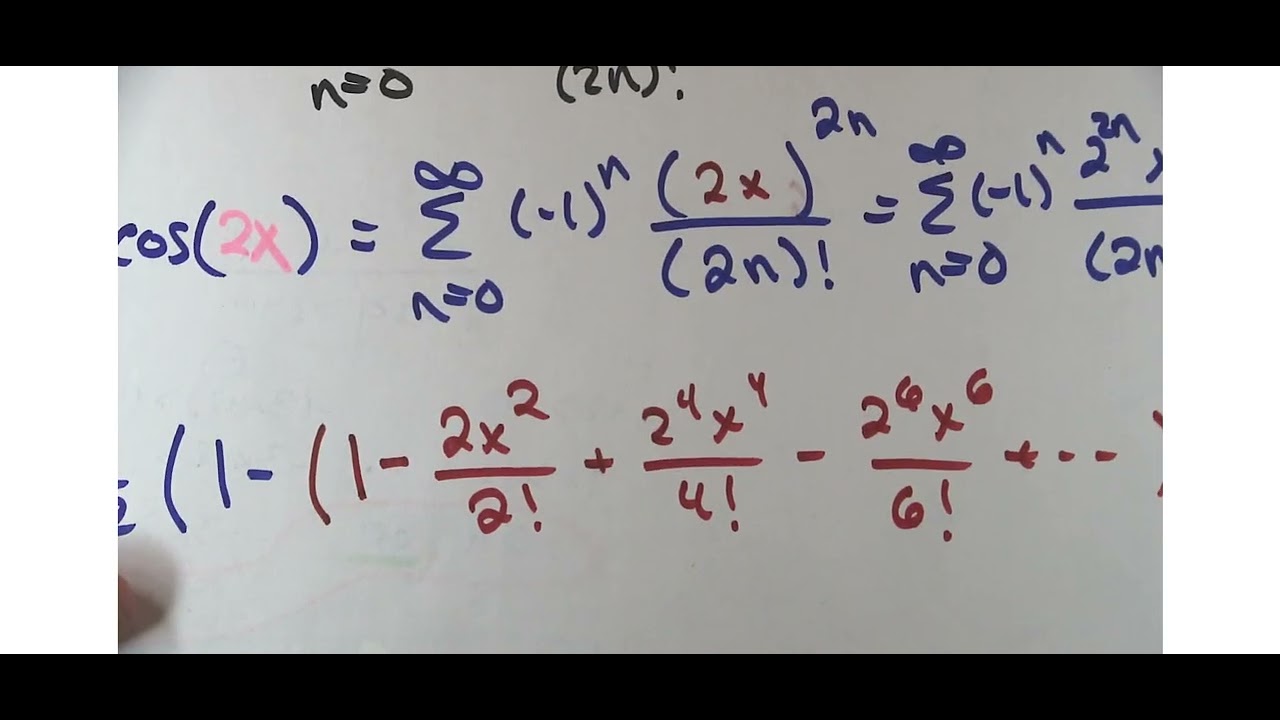 n=0 (2n)!
cos(2x) = ∞ Σ n=0 (-1)^n (2x)^2n / (2n)! = ∞ Σ n=0 (-1)^n 2^2n / (2n
(1 - (1 - 2x^2 / 2! + 2^4 x^4 / 4! - 2^6 x^6 / 6! + ...